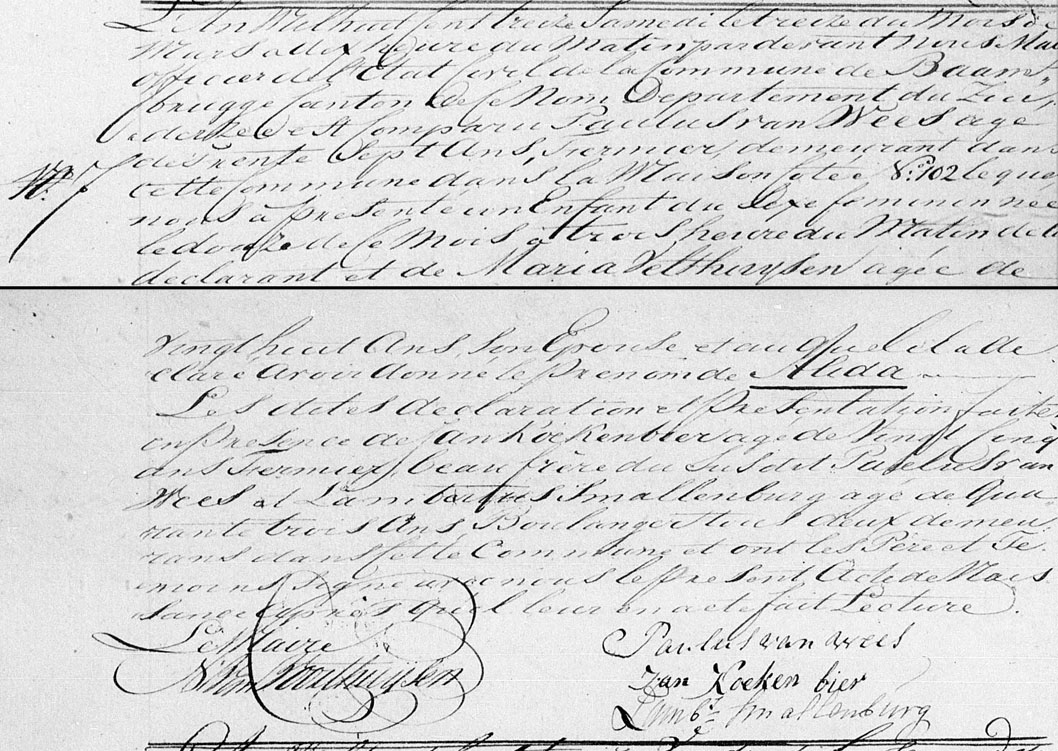 L'An Mil huit Cent treize Samedi le treize du Mois de
Mars a dix heure du Matin par devant nous Mair
officier de l'Etat Civel de la Commune de Baam-
brugge Canton de ce Nom, Departement du Zuy-
derzee est Comparu Paulus van Wees age
de trente Sept Ans, Fermier, demeurant dans
No. 7
cette Commune dans la Maison Cotée No. 102 le quel
nous à presente un Enfant du Sexe feminin née
le douze de ce Mois a trois heure du Matin de lui
declarant et de Maria Velthuysen agée de
vingt huit Ans, Son Epouse et au quel il a de
clare avoir donne le prenom de Alida
Les dites declaration et presentation faite
en presence de Jan Kockenbier agé de Vingt Cinq
ans Fermier, beau frère du Susdit Paulus van
Wees et Lambertus Smallenburg agé de Qua
rante trois Ans Boulanger tous deux demeu
rans dans Cette Commune et ont les Père et Te
moins signe avec nous le present, Acte de Nais
sance après qu'il leur en a ete fait Lecture.
Le Maire
Paulus van wees
Jan Koeken bier
Lambt. Smallenburg